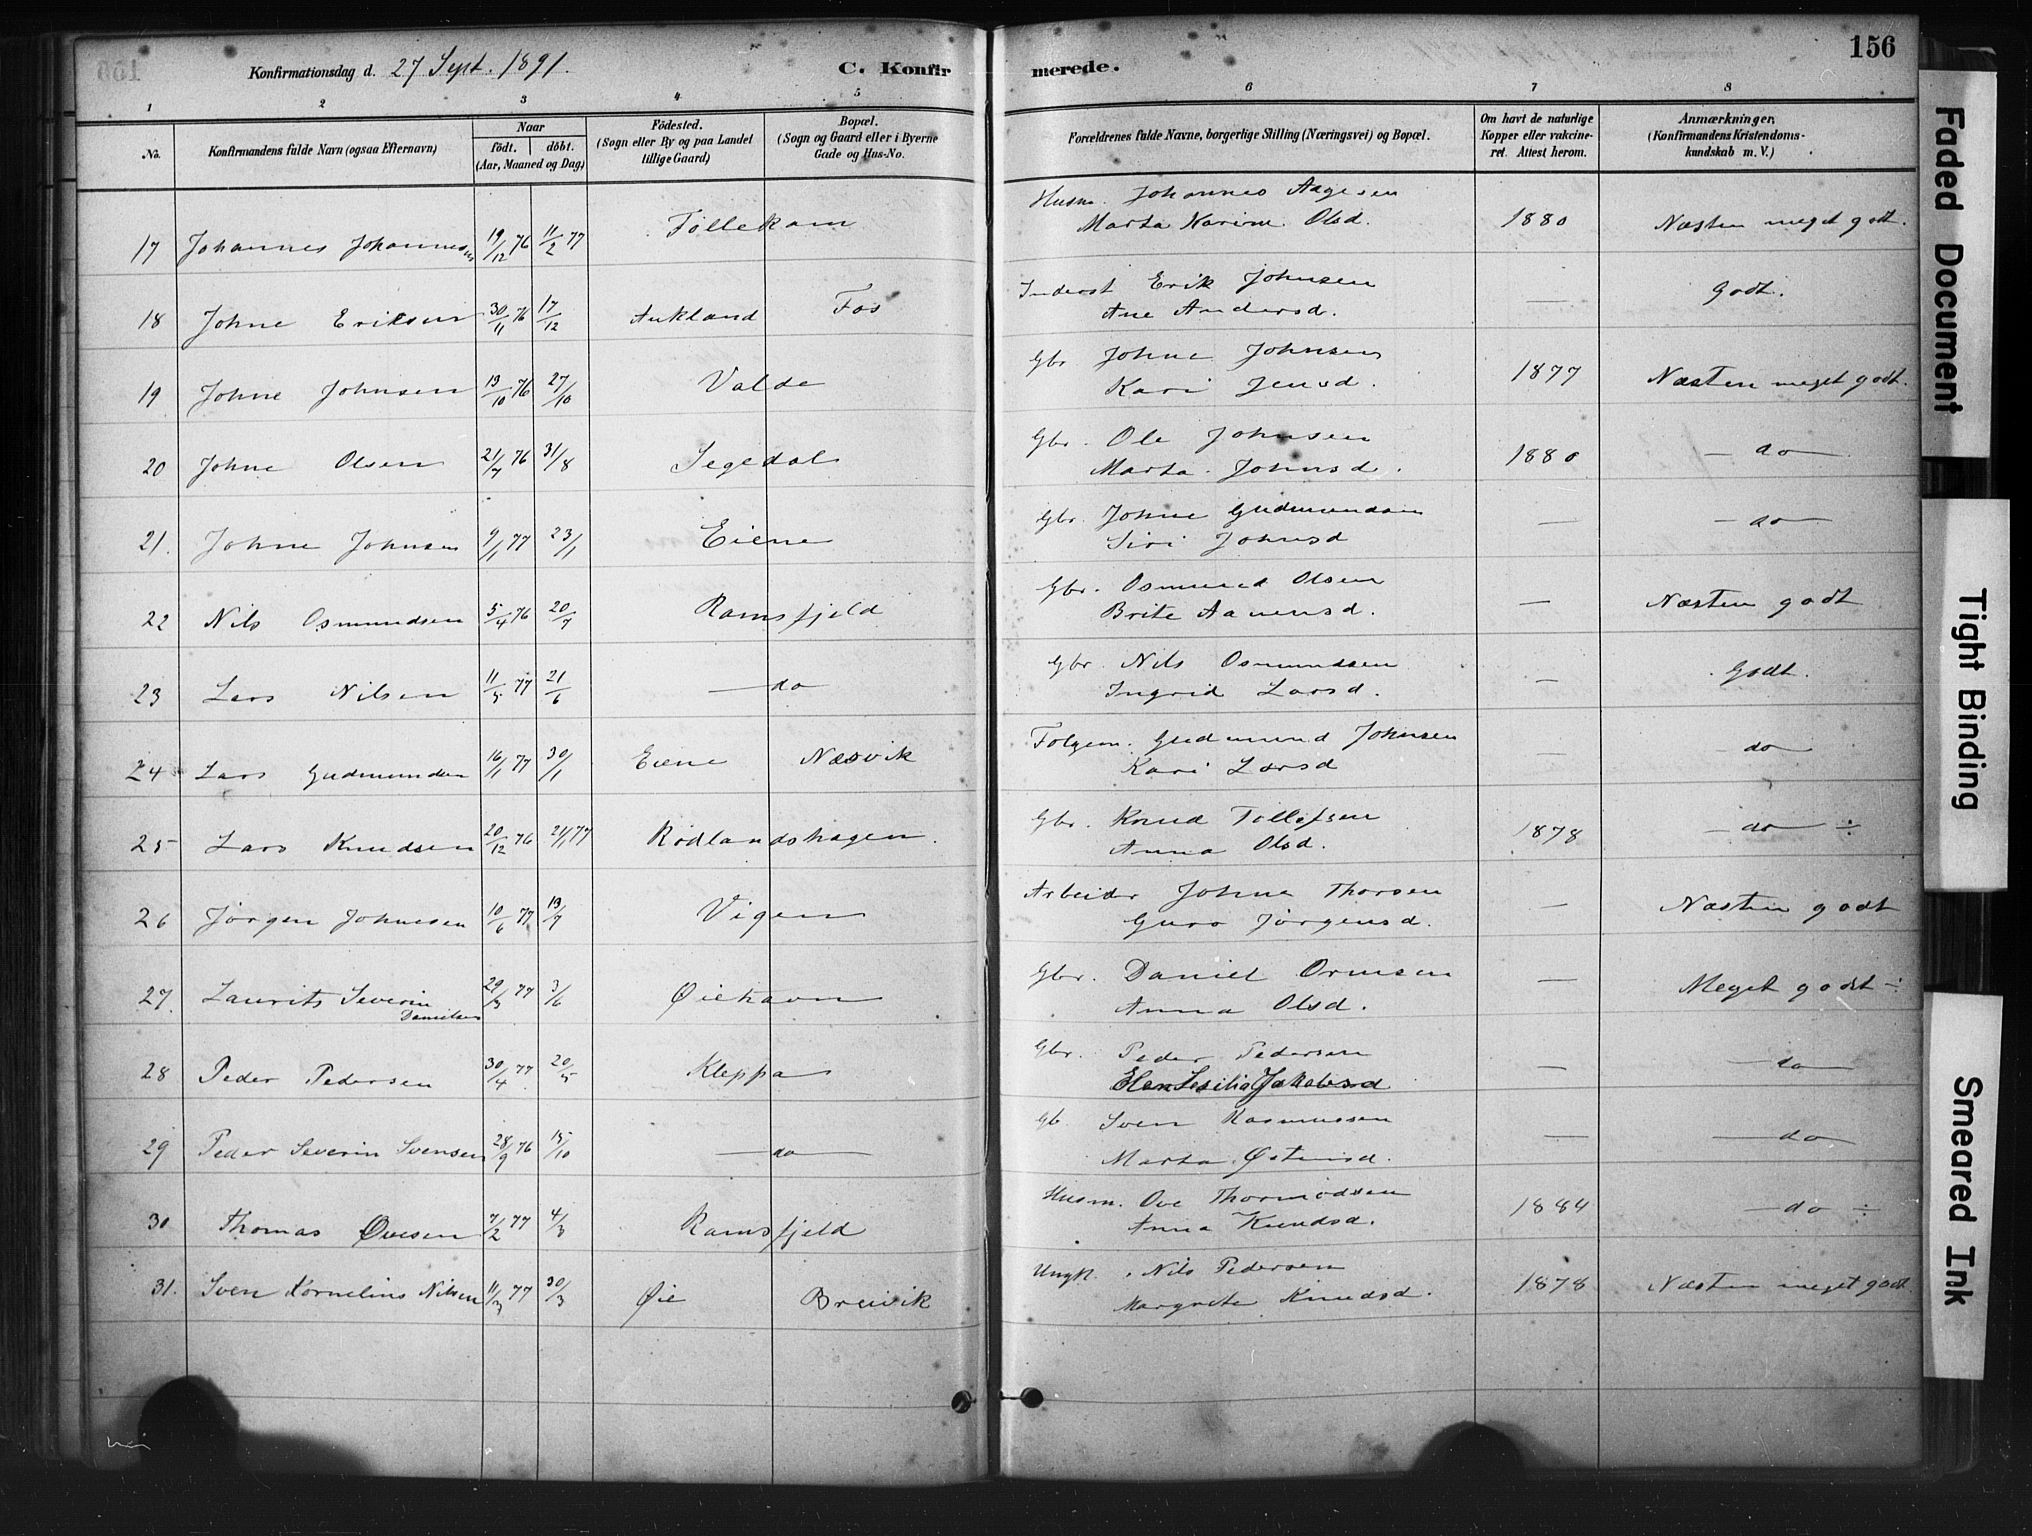 156
Konfirmationsdag d. 27 Sept. 1891.
C. Konfirmerede.
1 2 3 4 5 6 7 8
No.
Konfirmandens fulde Navn (ogsaa Efternavn)
Naar
født. døbt.
(Aar, Maaned og Dag)
Fødested.
(Sogn eller By og paa Landet
tillige Gaard)
Bopæl.
(Sogn og Gaard eller i Byerne
Gade og Hus-No.
Forældrenes fulde Navne, borgerlige Stilling (Næringsvei) og Bopæl.
Om havt de naturlige
Kopper eller vakcine-
ret. Attest herom.
Anmærkninger.
(Konfirmandens Kristendoms-
kundskab m. V.)
17 Johannes Johannesen 19/12 76 11/2 77 Tøllekam Husm. Johannes Aagesen
Marta Karine Olsd. 1880 Næsten meget godt.
18 Johne Eriksen 30/11 76 17/12 Aukland Fos Inderst Erik Johnsen
Ane Andersd. — Godt.
19 Johne Johnsen 13/10 76 27/10 Valde Gbr. Johne Johnsen
Kari Jensd. 1877 Næsten meget godt.
20 Johne Olsen 21/7 76 31/8 Segedal Gbr. Ole Johnsen
Marta Johnsd. 1880 — do —
21. Johne Johnsen 9/1 77 23/1 Eiene Gbr. Johne Gudmundsen
Siri Johnsd — — do —
22 Nils Osmundsen 5/4 76 20/7 Ramsfjeld Gbr. Osmund Olsen
Brite Aanensd. — Næsten godt
23 Lars Nilsen 11/5 77 21/6 — do Gbr. Nils Osmundsen
Ingrid Larsd. — Godt.
24 Lars Gudmundsen 16/1 77 30/1 Eiene Næsvik Folgem. Gudmund Johnsen
Kari Larsd — do
25 Lars Knudsen 20/12 76 21/1 77 Rødlandshagen. Gbr. Knud Tollefsen
Anna Olsd. 1878 — do — ÷
26 Jørgen Johnesen 10/6 77 13/7 Vigen Arbeider Johne Thorsen
Guro Jørgensd. — Næsten godt
27 Laurits Severin
Danielsen 29/3 77 3/6 Øiehavn Gbr. Daniel Ormsen
Anna Olsd. — Meget godt ÷
28 Peder Pedersen 30/4 77 20/5 Kleppa Gbr. Peder Pedersen
Elen Sesilia Jakobsd — — do
29 Peder Severin Svensen 28/9 76 15/10 — do — Gb. Sven Rasmussen
Marta Østensd. — — do.
30 Thomas Ovesen 7/2 77 4/3 Ramsfjeld Husm. Ove Thormodsen
Anna Knudsd. 1884 — do ÷
31. Sven Kornelius Nilsen 11/3 77 30/3 Øie Breivik Ungk. Nils Pedersen
Margrete Knudsd. 1878 Næsten meget godt
Faded Document
Tight Binding
Smeared Ink